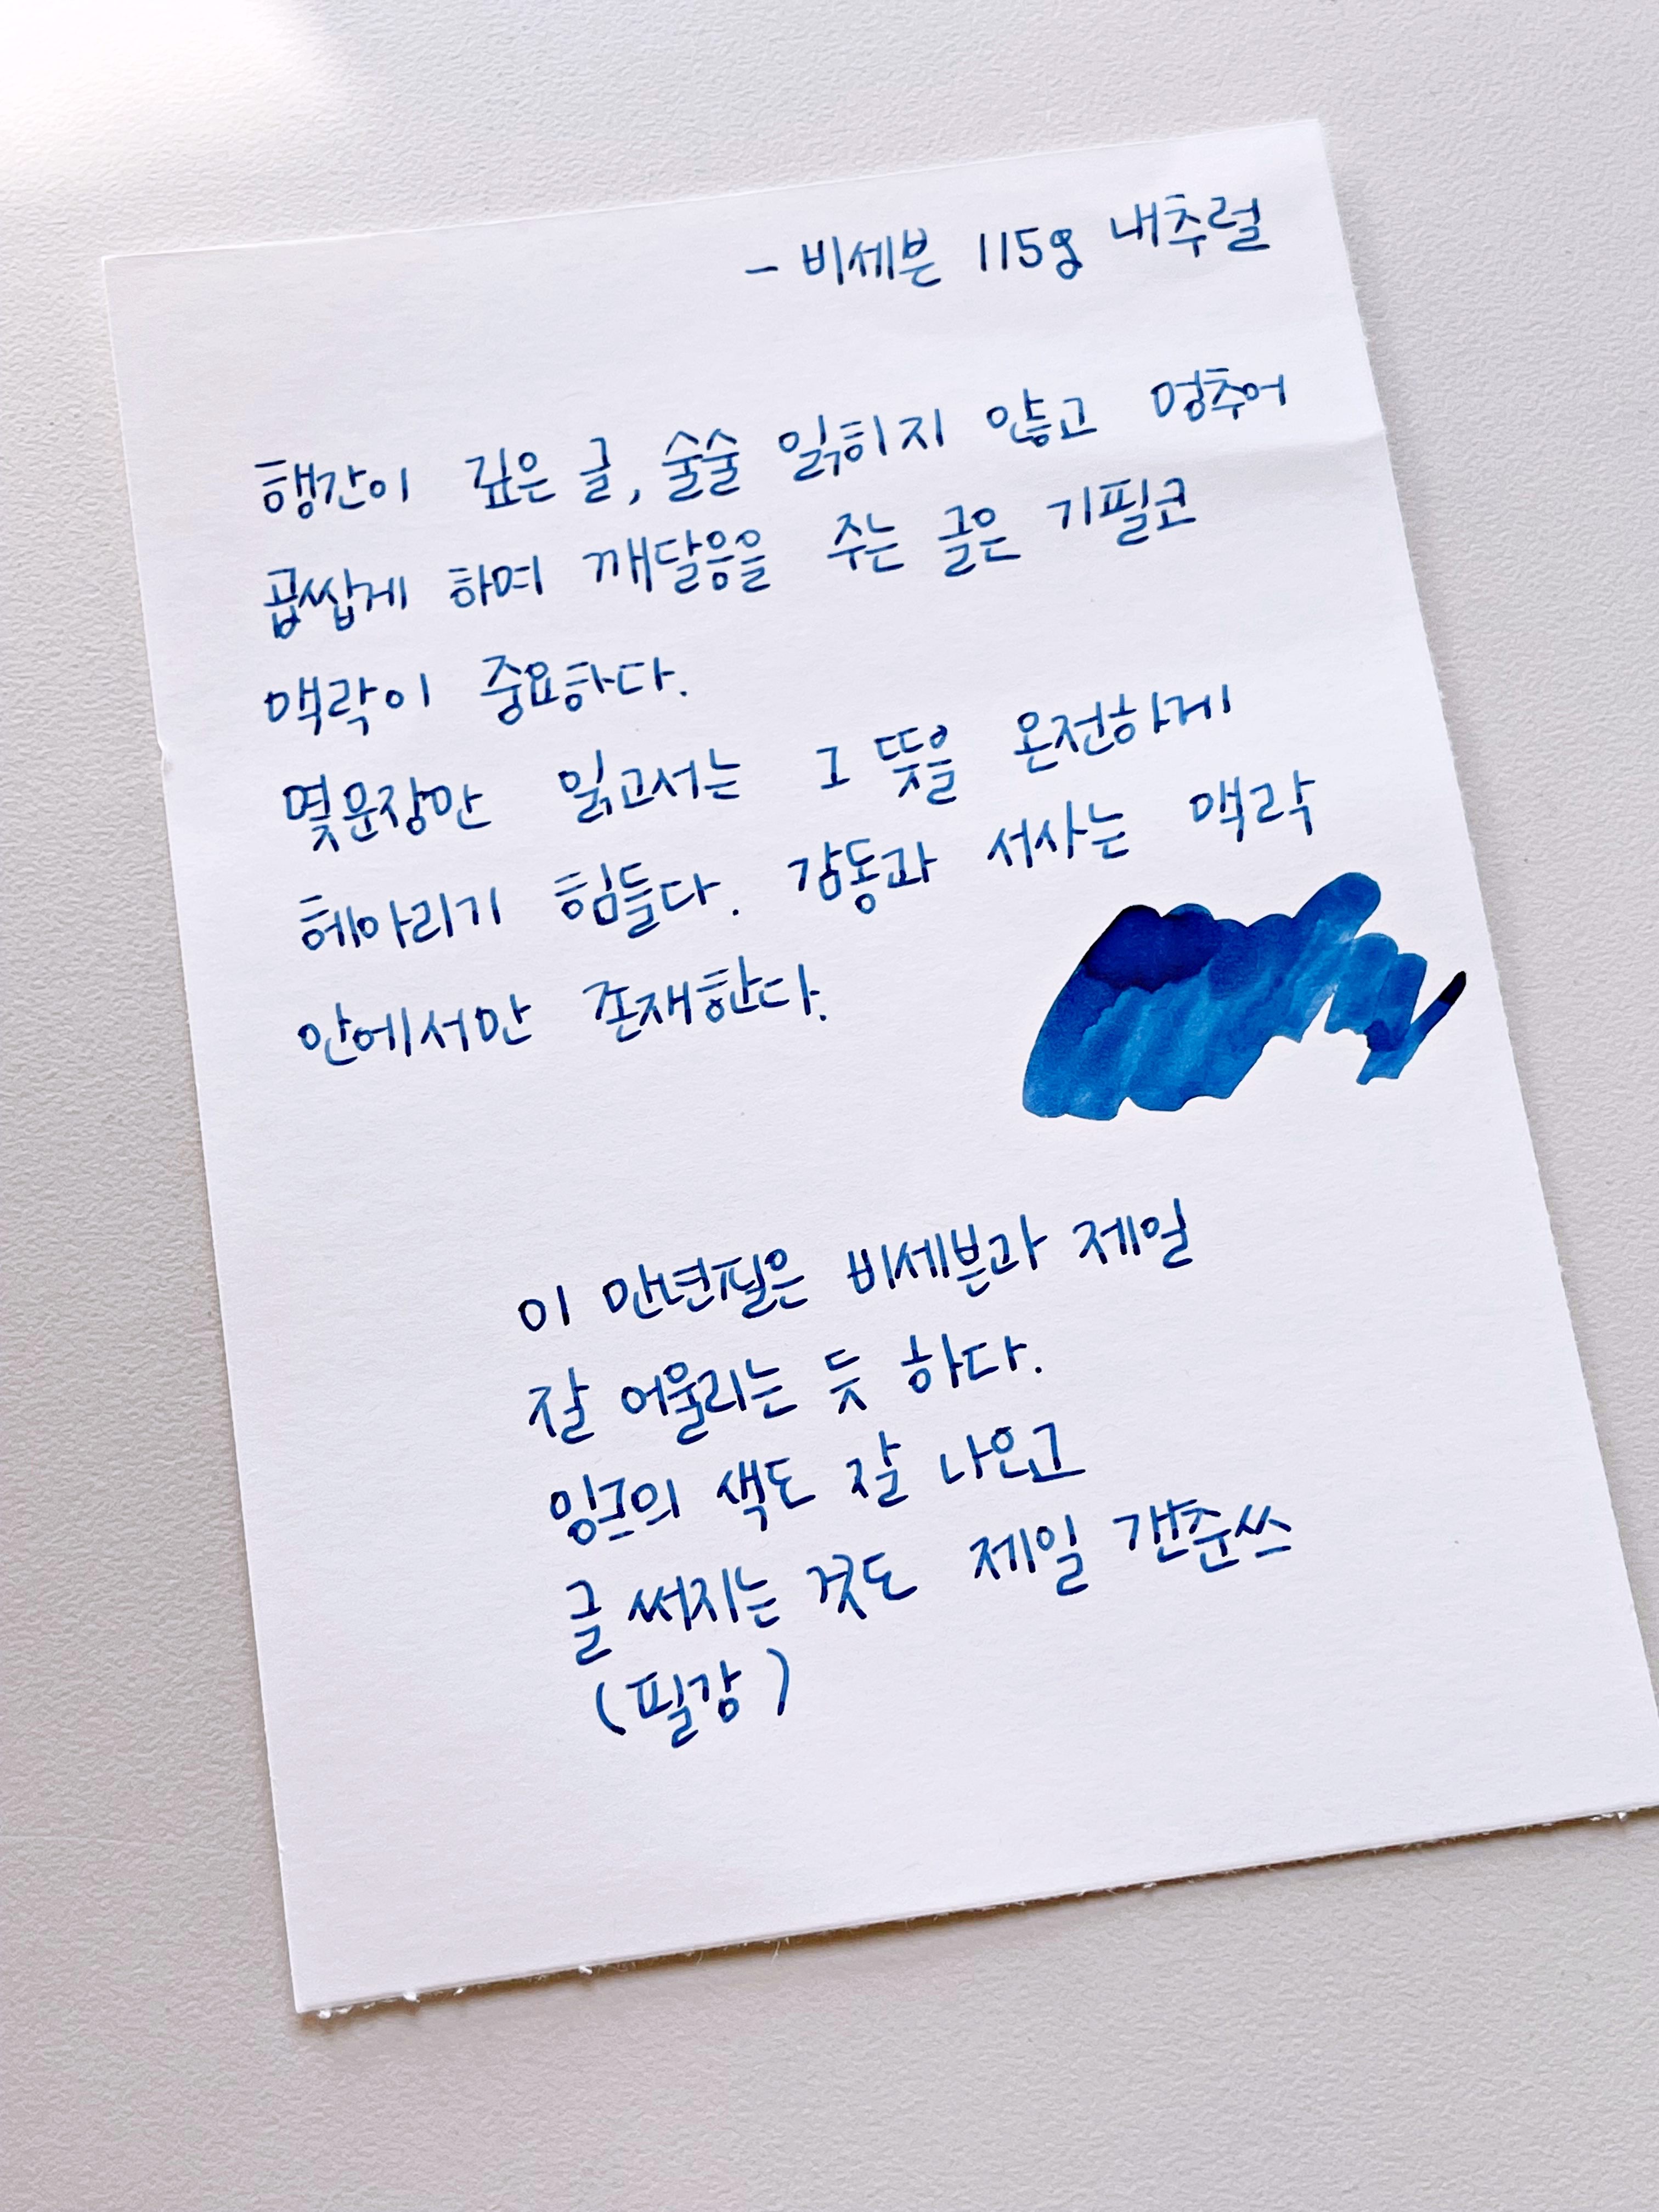 - 비세븐 115g 내추럴
행간이 깊은 글, 술술 읽히지 않고 멈추어
곱씹게 하며 깨달음을 주는 글은 기필코
맥락이 중요하다.
몇문장만 읽고서는 그 뜻을 온전하게
헤아리기 힘들다. 감동과 서사는 맥락
안에서만 존재한다.
이 만년필은 비세븐과 제일
잘 어울리는 듯 하다.
잉크의 색도 잘 나오고
글 써지는 것도 제일 갠춘쓰
(필감)